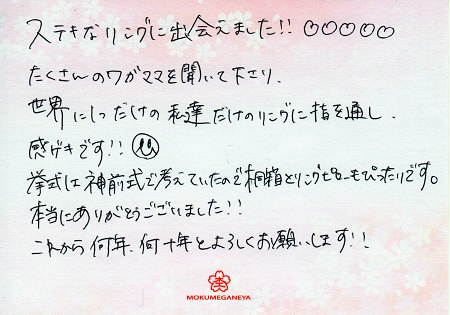 ステキなリングに出会えました!! ♡♡♡♡♡
たくさんのワガママを聞いて下さり、
世界に1つだけの私達だけのリングに指を通し、
感ゲキです!!
挙式は神前式で考えていたので桐箱とリングピローもぴったりです。
本当にありがとうございました!!
これから何年、何十年とよろしくお願いします!!
MOKUMEGANEYA